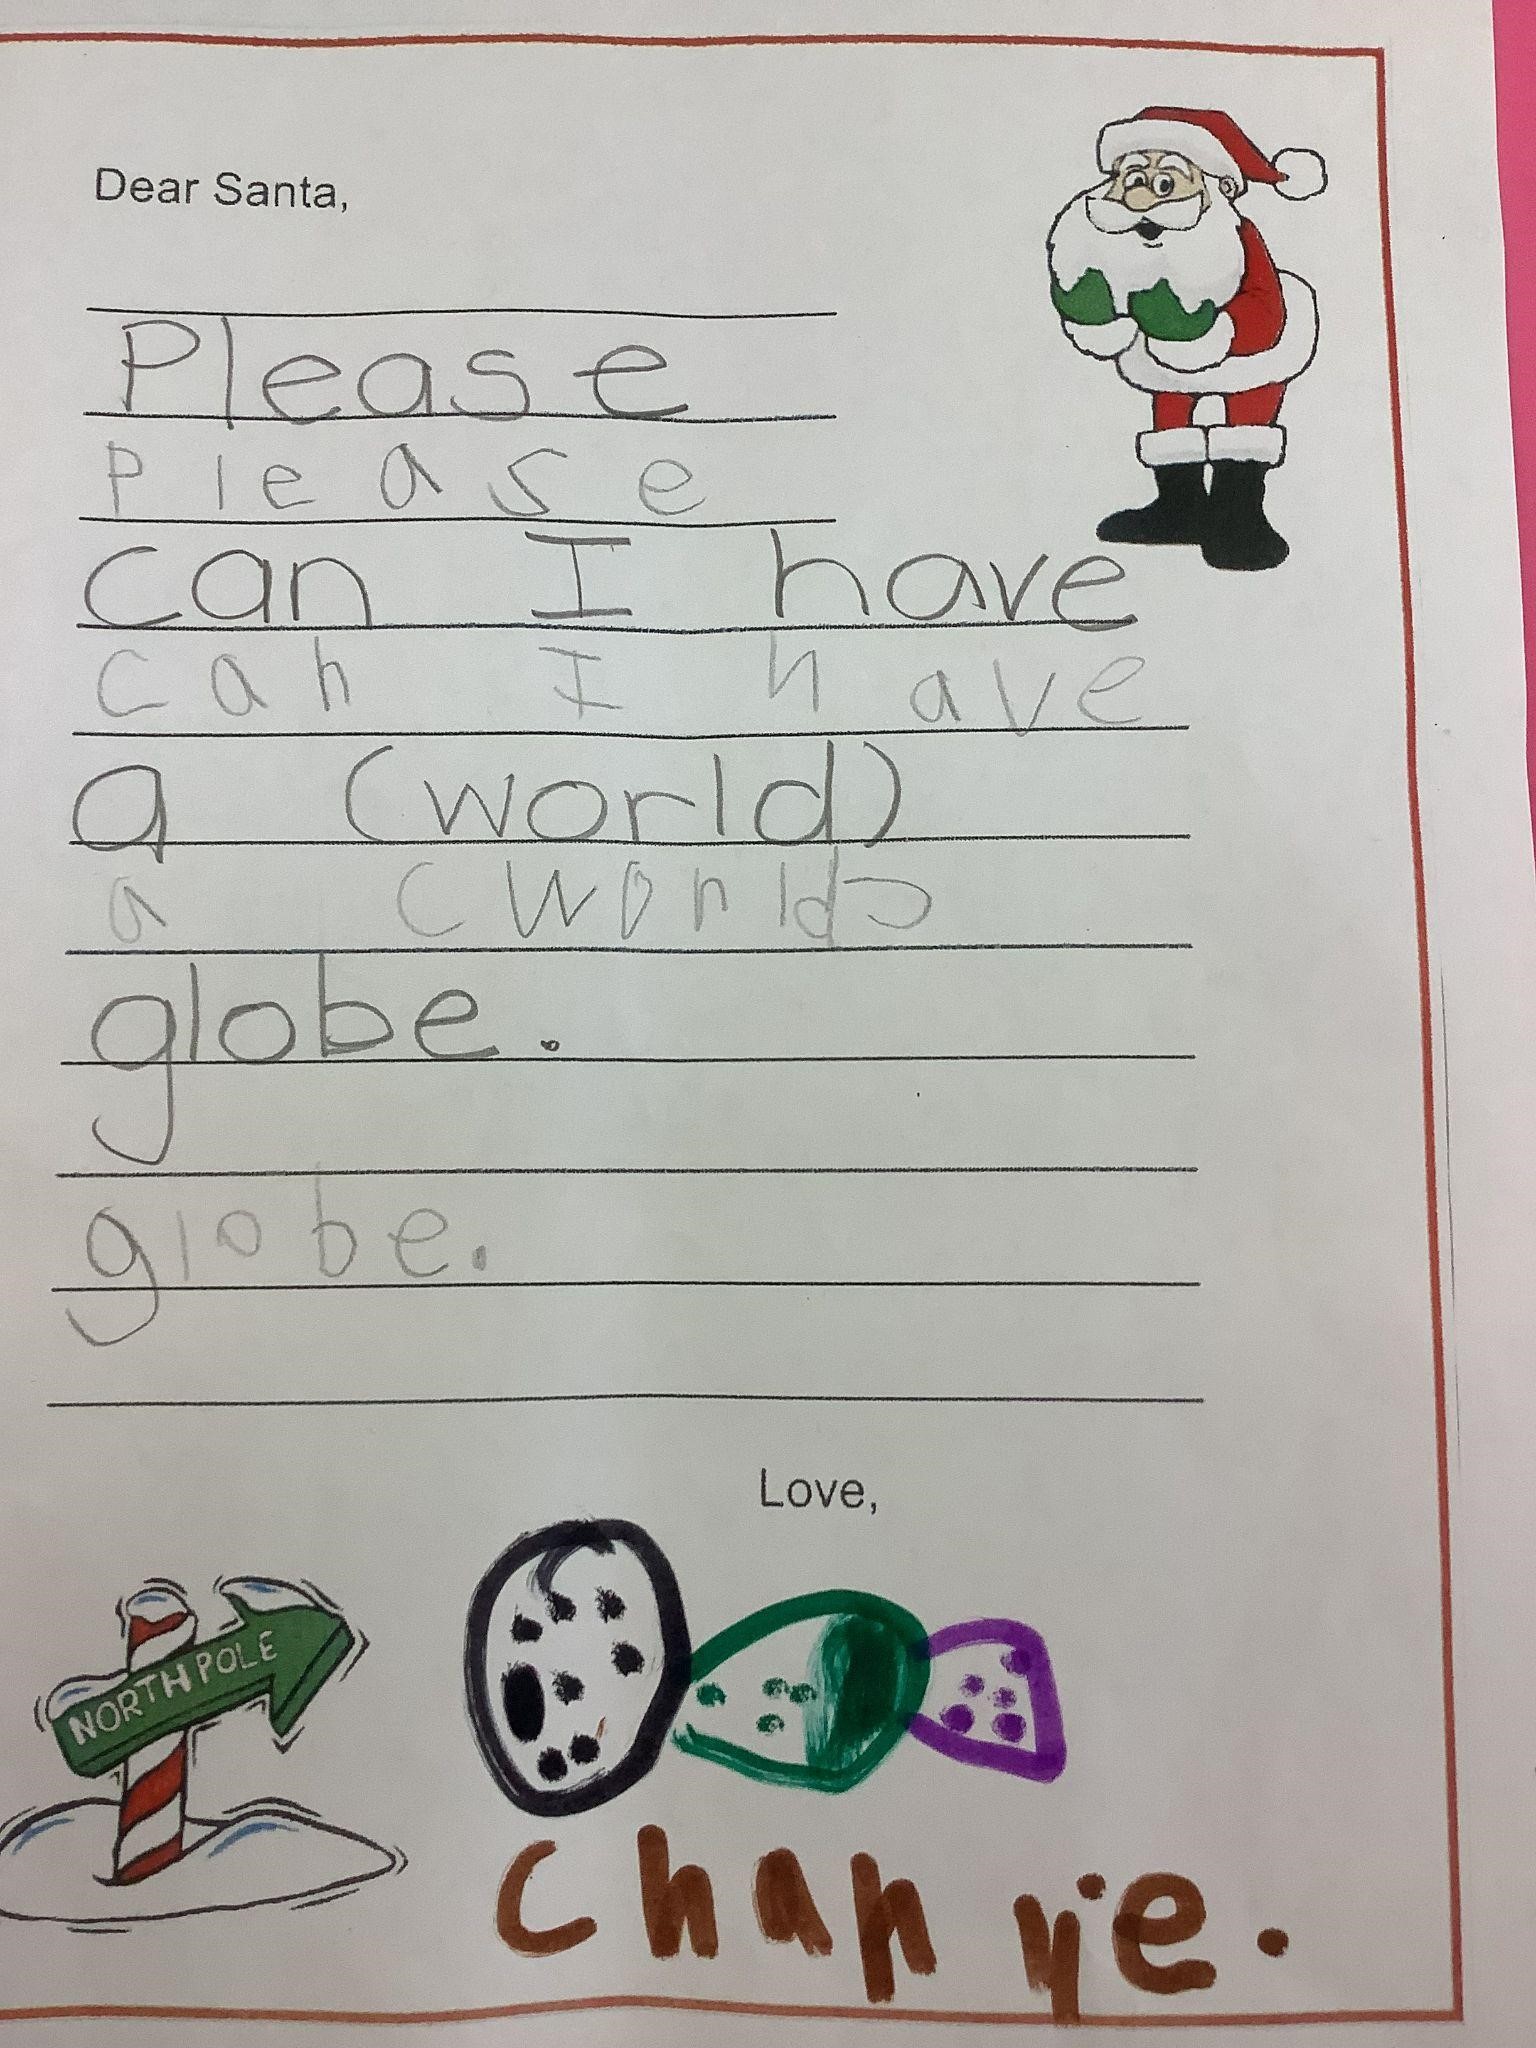 Dear Santa,
Please
Please
can I have
can I have
a (world)
a (world)
globe.
globe.
Love,
NORTH POLE